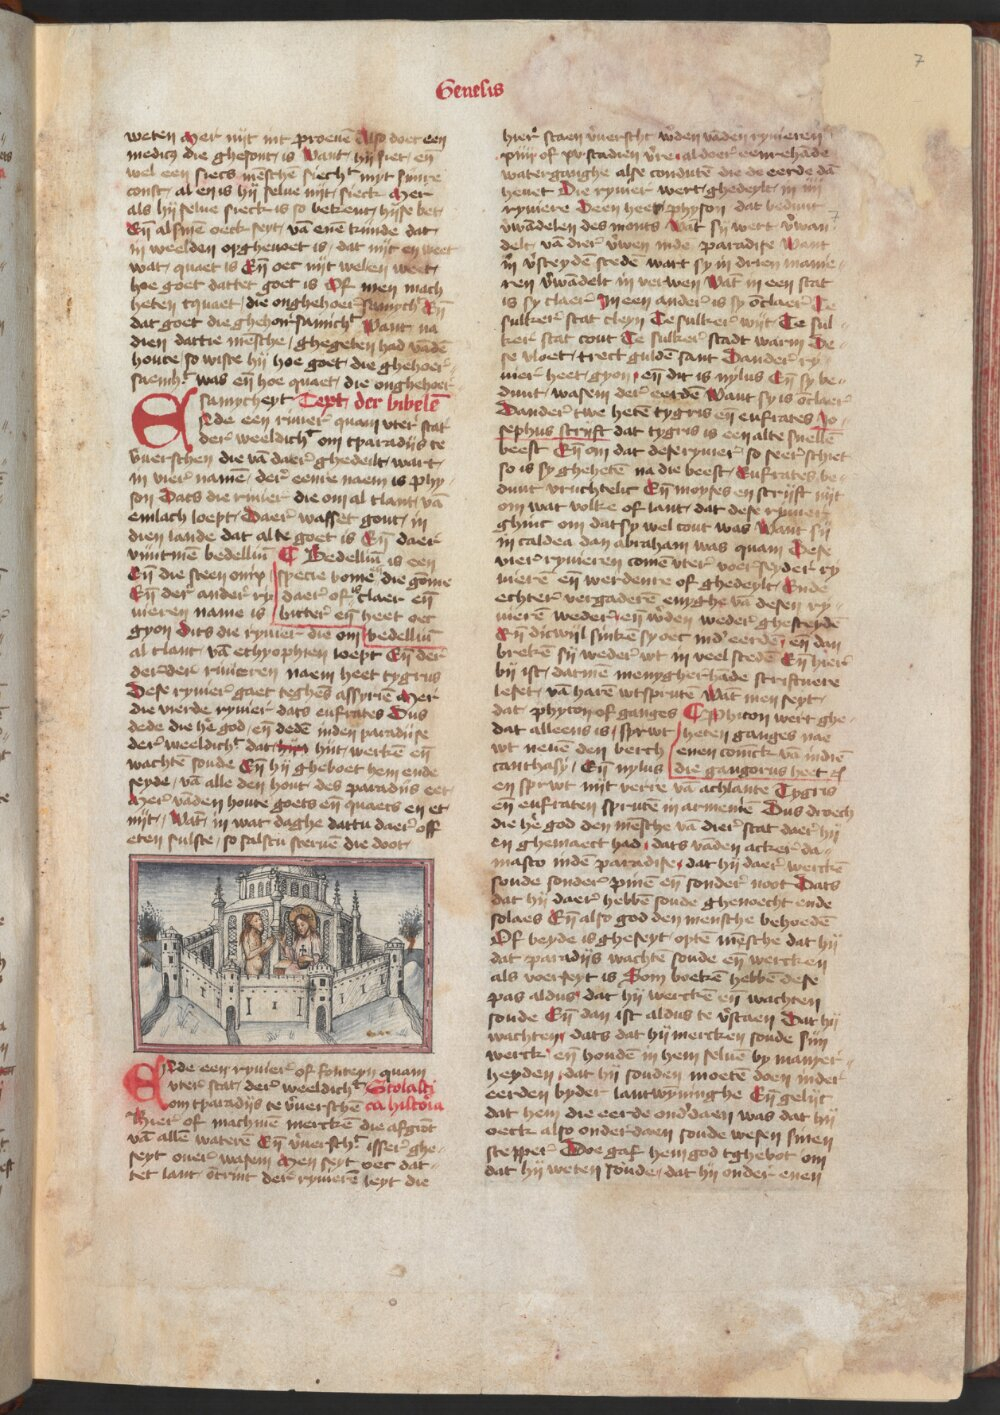 Genesis
7
weten Mer nijt int proeuē Also doet een
medicꝰ die ghesont is Want hij siet, eñ
wel een siecs mēschē siecht͛ mijt sijnre
const, al en is hij selue nijt, sieck Mer
als hij selue sieck is so bekent, hijse bet͛
Eñ alsmē oeck seyt, vā enē kinde dat
in weelden opghevoet is, dat nijt en weet
wat, quaet is Eñ oec nijt wel en weet,
hoe goet dattet goet is Of men mach
heten tquaet, die onghehoer͛samich͛t Eñ
dat goet die ghehoer͛samich͛t Want na
dien dattie mēsche, ghegeten had vādē
houte, so wiste hij hoe goet, die ghehoer͛
saemh͛t was eñ hoe quaet, die onghehoer͛
samycheyt Text der bibelē
Ende een riuier͛ quam vter stat
der͛ weeldich͛t om tparadijs te
v͛uerschen die vā daer͛ ghedeilt, wart,
in vier͛ namē, der͛ eenre naem is phy
son Dats die riuier die om al tlant, vā
emlach loept, Daer͛ wasset gout, in
dien lande dat alte goet is Eñ daer
vijntmē bedelliū
Eñ die steen onix
Eñ der͛ ander͛ ry
uieren name is
gyon Dits die ryuier die om
¶ Bedelliū is een
specie bome, die gōme
daer͛ of is claer eñ
bitter͛ eñ heet oec
bedelliū
al tlant, vā ethyophien loept Eñ der
derder͛ riuieren naem heet tygrus
Dese ryuier͛ gaet teghēs assyriē Mer
die vierde ryuier dats eufrates Dus
dede die he͛ god, eñ dedē inden paradijse
der͛ weeldich͛t dat hijt hijt, werkēn eñ
wachtē soude Eñ hij gheboet hem ende
seyde, vā alle den hout, des paradijs eet,
Mer͛ vāden houte goets eñ quaets en et
nijt, Wāt, in wat daghe dattu daer͛ off
eten sulste, so salstu steruē die doot,
Ende een ryuier͛ of fonteyn quam
vter͛ stat, der͛ weeldich͛t Scolasti
om tparadijs te v͛uerschē ca historia
Hier͛ of machmē merckē die afgrōt
vā allē waterē Eñ v͛uersch͛t isser͛ ghe
seyt ouer͛ wasem Men seyt oec dat
tet lant, ōtrint der͛ ryuierē leyt die
hier͛ staen v͛uerscht w͛den vāden ryuieren
xiiij of xv stadien v͛re, aldoer eenrehāde
waterganghe alse condute die de eerde dā
heuet Die ryuier wert, ghedeylt, in iiij
ryuiere Deen heet physon dat beduut
v͛wādelen des monts Wāt sij wert v͛wan
delt, vā dier͛ v͛wen inde paradise Want
in v͛scheydē stedē wart sij in drien manie
ren v͛wādelt in verwen Wāt in een stat
is sy claer͛ In een ander͛ is sy ōclaer͛ Te
sulker͛ stat cleyn Te sulker͛ wijt, Te sul
ker stat cout Te sulker͛ stadt warm De
se vloet, trect guldē sant Dander ry
uier heet, gyon, eñ dit is nylus Eñ sy be
duut, wasem der͛ eerdē Want sij is ōclaer͛
Dander͛ twe hetē tygris eñ eufrates Jo
sephus scrijft dat tygris is een alte snellē
beest Eñ om dat dese ryuier͛ so seer͛ schiet
so is sy ghehetē na die beest, Eufrates, be
duut vruchtelic Eñ moyses en scrijft nijt
om wat volke of lant, dat dese ryuier
ghinc om dat sy wel cout was Want sij
in caldea dan abraham was quam Dese
vier͛ ryuieren comē vter͛ voer͛seyder ry
uierē eñ werdenre of ghedeylt, Ende
echter͛ vergaderē enyghe vā desen ry
uierē weder͛, eñ w͛den weder͛ ghescheydē
Eñ dicwijl sinkē sy oec ind͛ eerdē, eñ dan
brekē sij weder͛ wt in veel stedē Eñ hier͛
bij ist, darmē menygher͛hāde scriftuere
leset, vā harē wtsprutē Wāt men seyt,
dat physon of ganges
dat alleens is, sprwt
wt neuē den berch
caucasij, Eñ nylus
¶ Phison wert ghe
heten ganges nae
enen coninck vā indiē
die gangorus heet
en sprwt nijt verre vā athlante Tygris
eñ eufraten sprutē in armeniē Dus droech
die he͛ god den mēsche vā dier͛ stat daer͛ hij
en ghemaect had, dats vāden acker͛ da
masco indē paradise, dat hij daer͛ werckē
soude sonder͛ pinē eñ sonder͛ noot Dats
dat hij daer͛ hebbē soude ghenoecht ende
solaes Eñ also god den mensche behoedē
Of beyde is gheseyt, optē mēsche dat hij
dat paradijs wachtē soude eñ wercken
als voerseyt is Som boekē hebbē dese
pas aldus, dat hij werckē eñ wachten
soude Eñ dan ist aldus te v͛staen Dat hij
wachten, dats dat hij mercken soude sijn
werck, eñ houdē in hem seluē by manyer
heyden, dat hij souden moetē doen inder
eerden byder͛ lantwijnnighe Eñ gelijc
dat hem die eerde ond͛daen was dat hij
oeck also onderdaen soude wesen sinen
stepper͛ Doe gaf hem god tghebot om
dat hij weten soude, dat hij onder enen